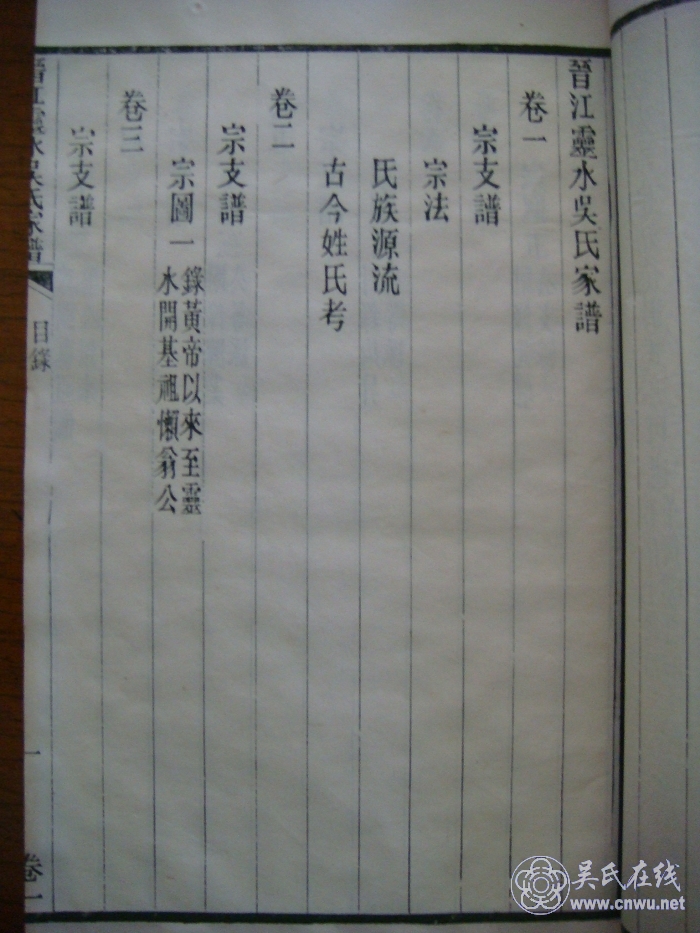 晉江靈水吳氏家譜
卷一
宗支譜
宗法
氏族源流
古今姓氏考
卷二
宗支譜
宗圖一
錄黃帝以來至靈
水開基祖懶翁公
卷三
宗支譜
晉江靈水吳氏家譜
目錄
一
卷一
吴氏在线
www.cnwu.net